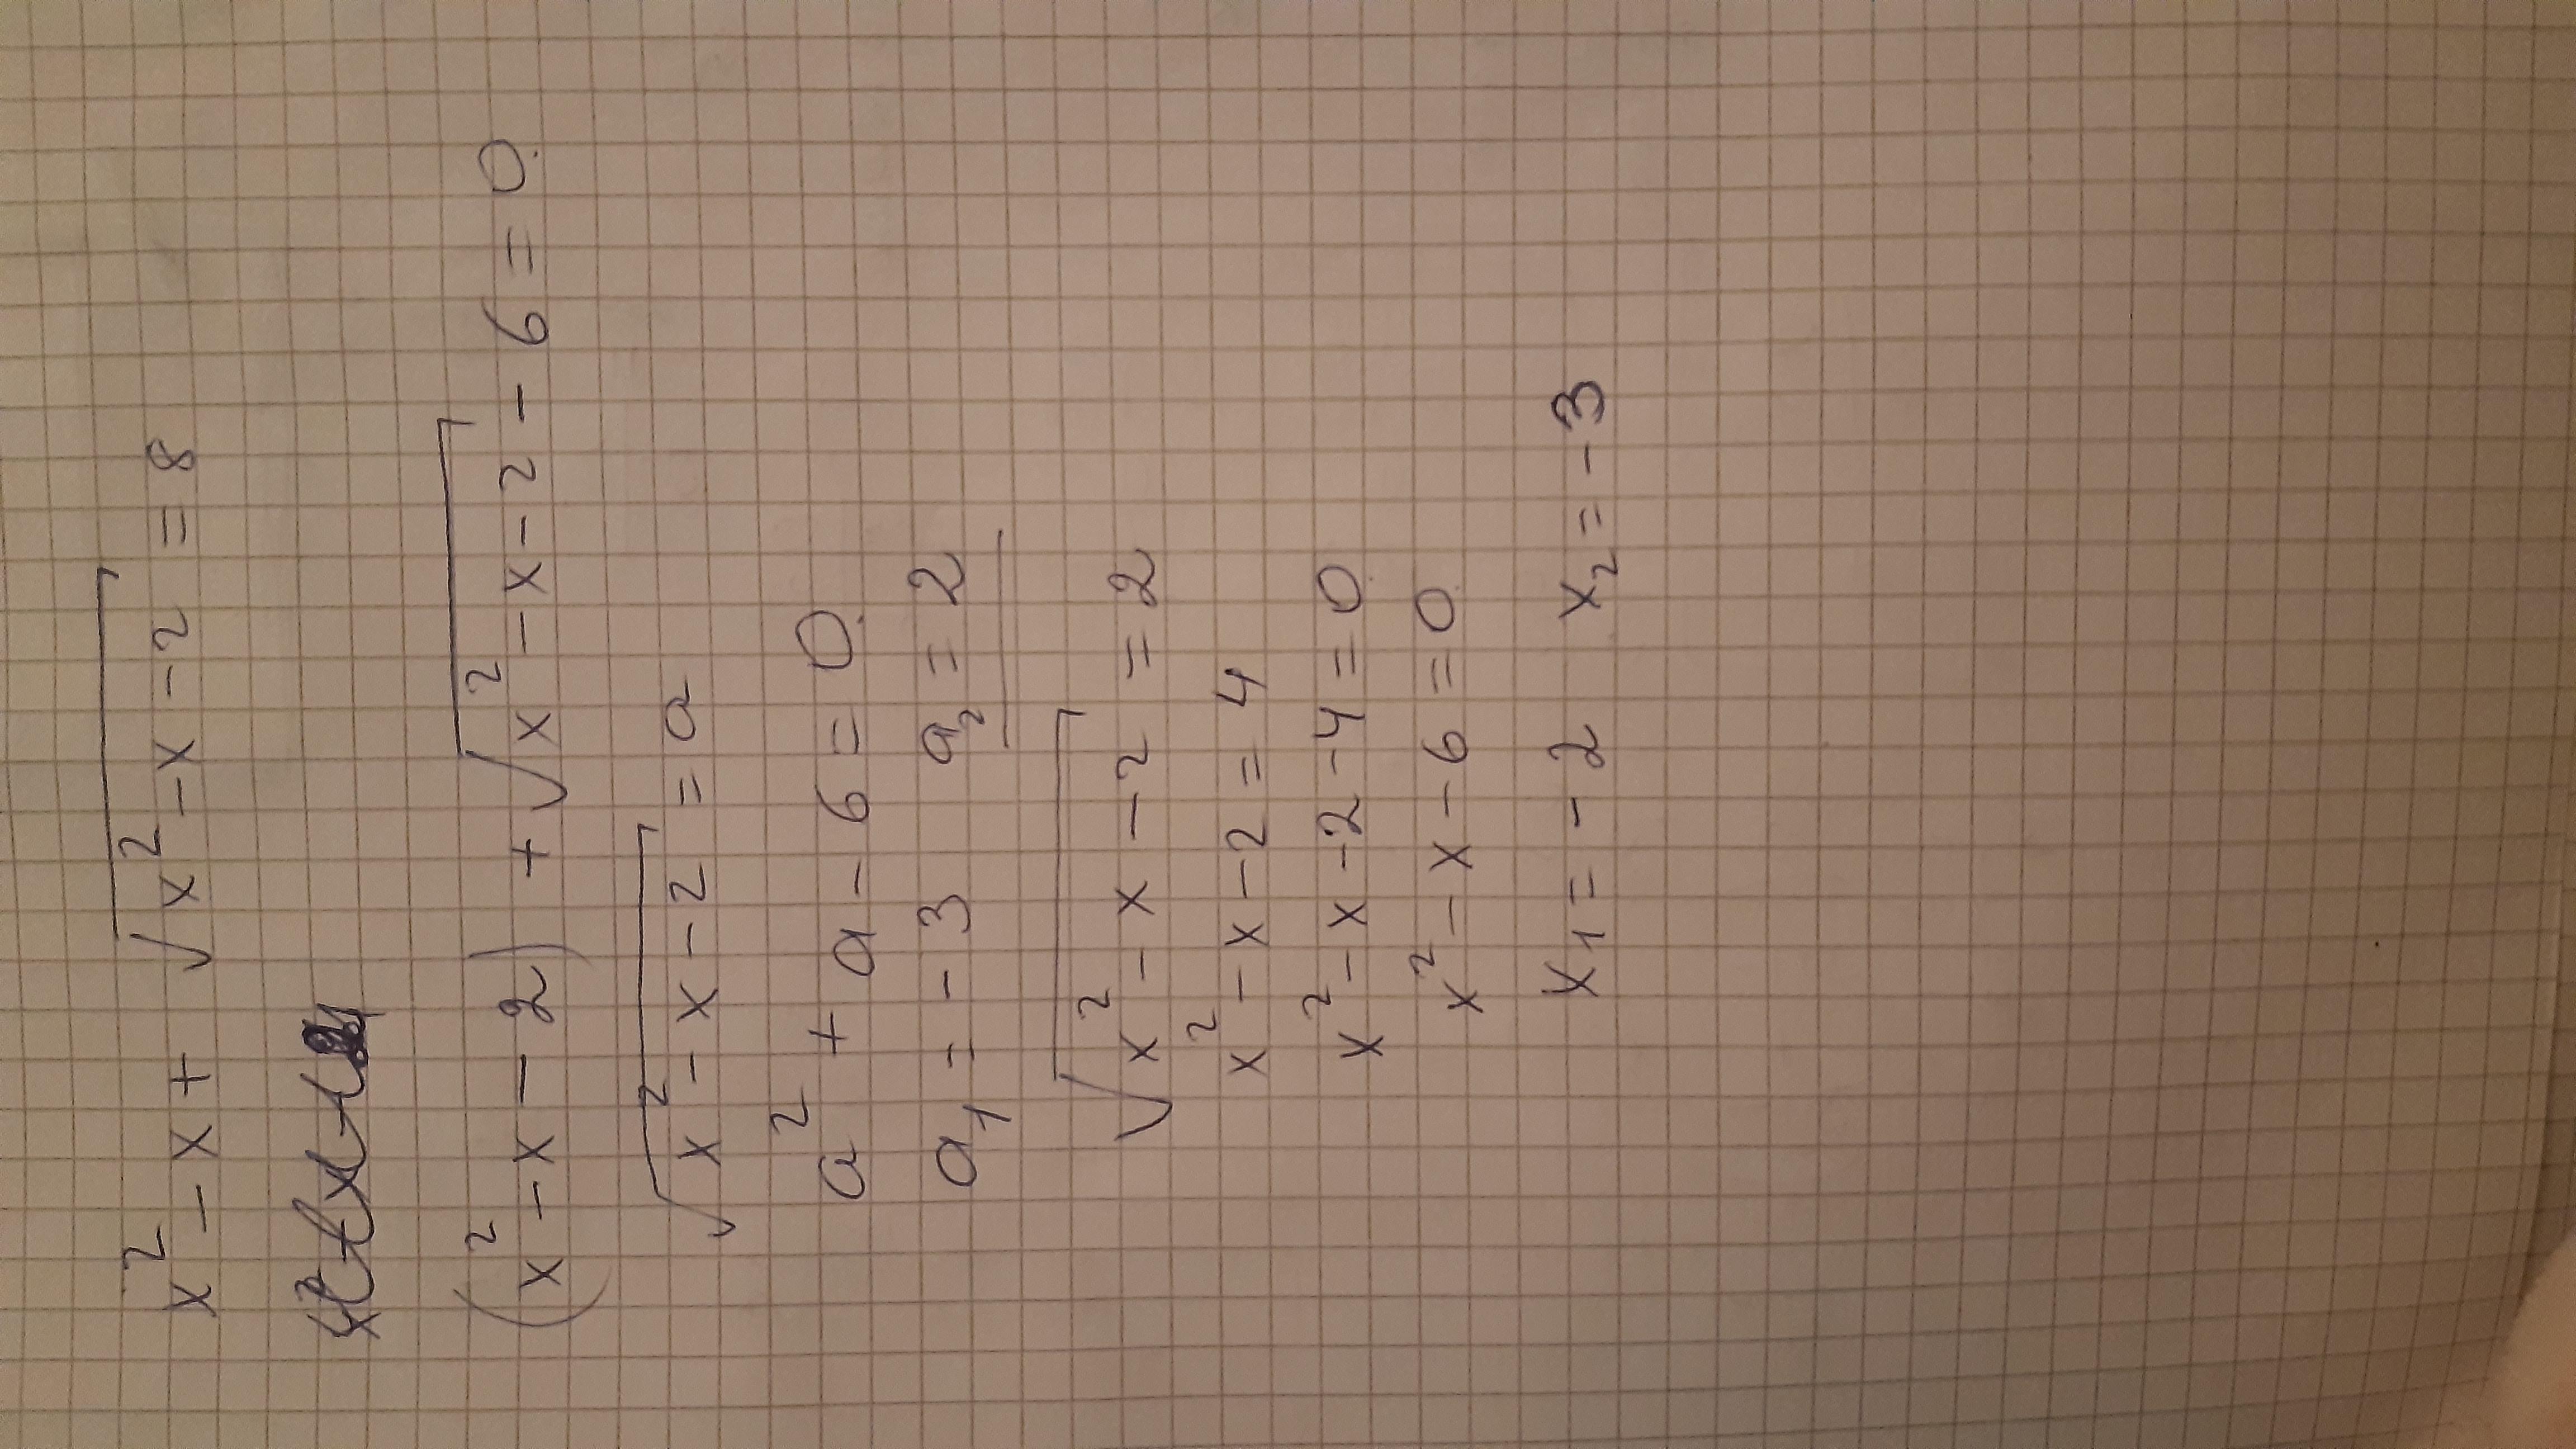 x² - x + √(x² - x - 2) = 8
(x² - x - 2) + √(x² - x - 2) - 6 = 0.
√(x² - x - 2) = a
a² + a - 6 = 0.
a₁ = - 3 a₂ = 2
√(x² - x - 2) = 2
x² - x - 2 = 4
x² - x - 2 - 4 = 0.
x² - x - 6 = 0.
x₁ = - 2 x₂ = - 3